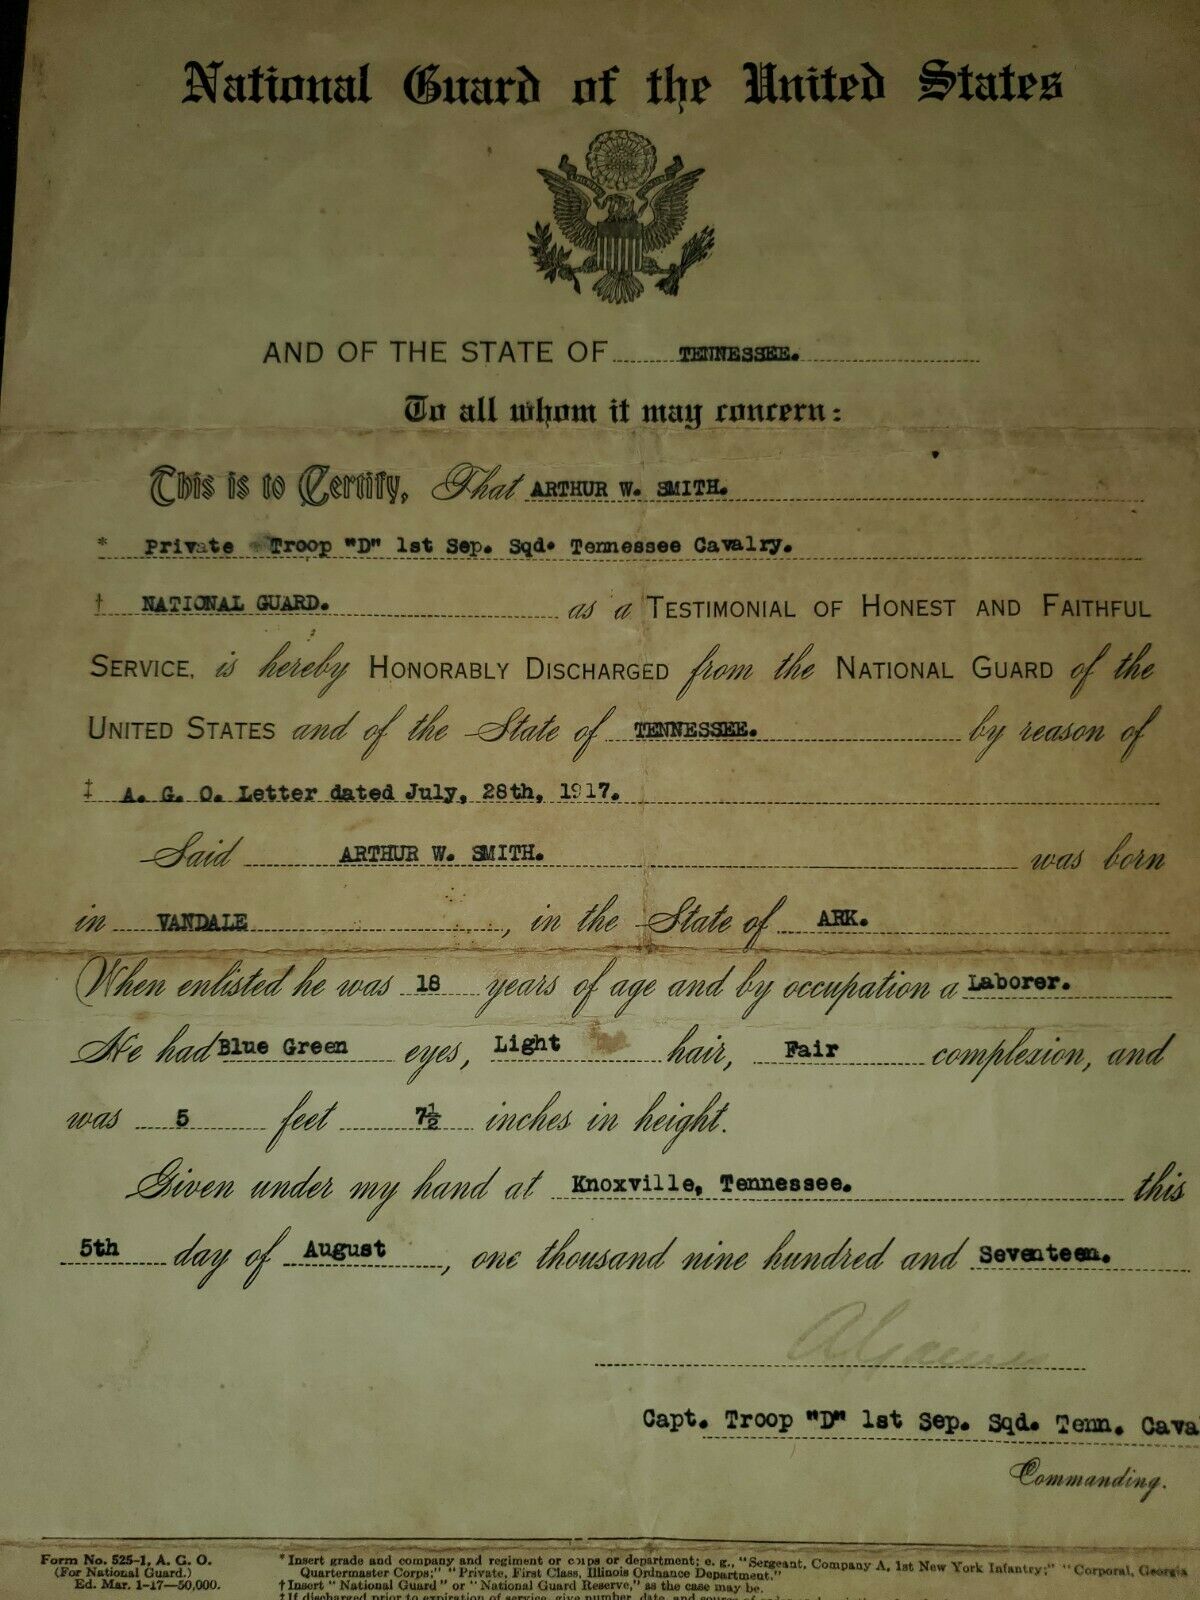 National Guard of the United States
AND OF THE STATE OF TENNESSEE.
To all whom it may concern:
This is to Certify, That ARTHUR W. SMITH.
* Private Troop "D" 1st Sep. Sqd. Tennessee Cavalry.
† NATIONAL GUARD. as a TESTIMONIAL OF HONEST AND FAITHFUL
SERVICE, is hereby HONORABLY DISCHARGED from the NATIONAL GUARD of the
UNITED STATES and of the State of TENNESSEE. by reason of
‡ A. G. O. Letter dated July, 28th, 1917.
Said ARTHUR W. SMITH. was born
in VANDALE, in the State of ARK.
When enlisted he was 18 years of age and by occupation a Laborer.
He had Blue Green eyes, Light hair, Fair complexion, and
was 5 feet 7½ inches in height.
Given under my hand at Knoxville, Tennessee. this
5th day of August, one thousand nine hundred and Seventeen.
Capt. Troop "D" 1st Sep. Sqd. Tenn. Cava
Commanding.
Form No. 525-1, A. G. O.
(For National Guard.)
Ed. Mar. 1-17—50,000.
* Insert grade and company and regiment or corps or department; e. g., "Sergeant, Company A, 1st New York Infantry;" "Corporal, Georgia
Quartermaster Corps;" "Private, First Class, Illinois Ordnance Department."
† Insert "National Guard" or "National Guard Reserve," as the case may be.
‡ If discharged prior to expiration of service, give number, date, and source of